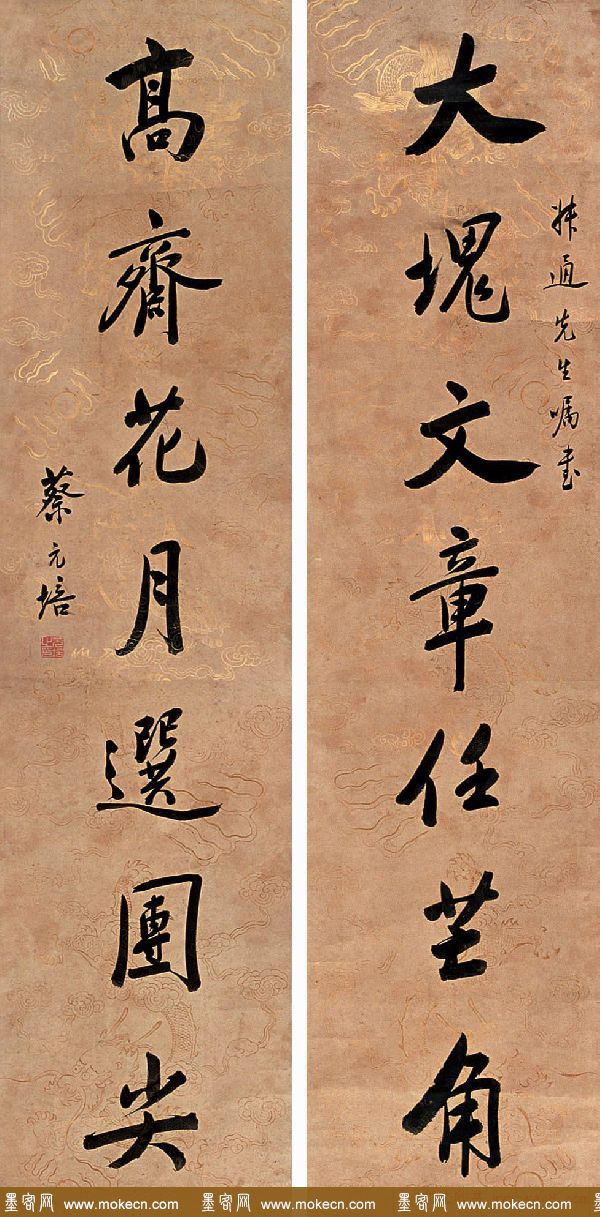 大塊文章任芒角
通先生嘱書
高齋花月選團尖
蔡元培
墨客网 www.mokecn.com 墨客网 www.mokecn.com 墨客网 www.mokecn.com 墨客网